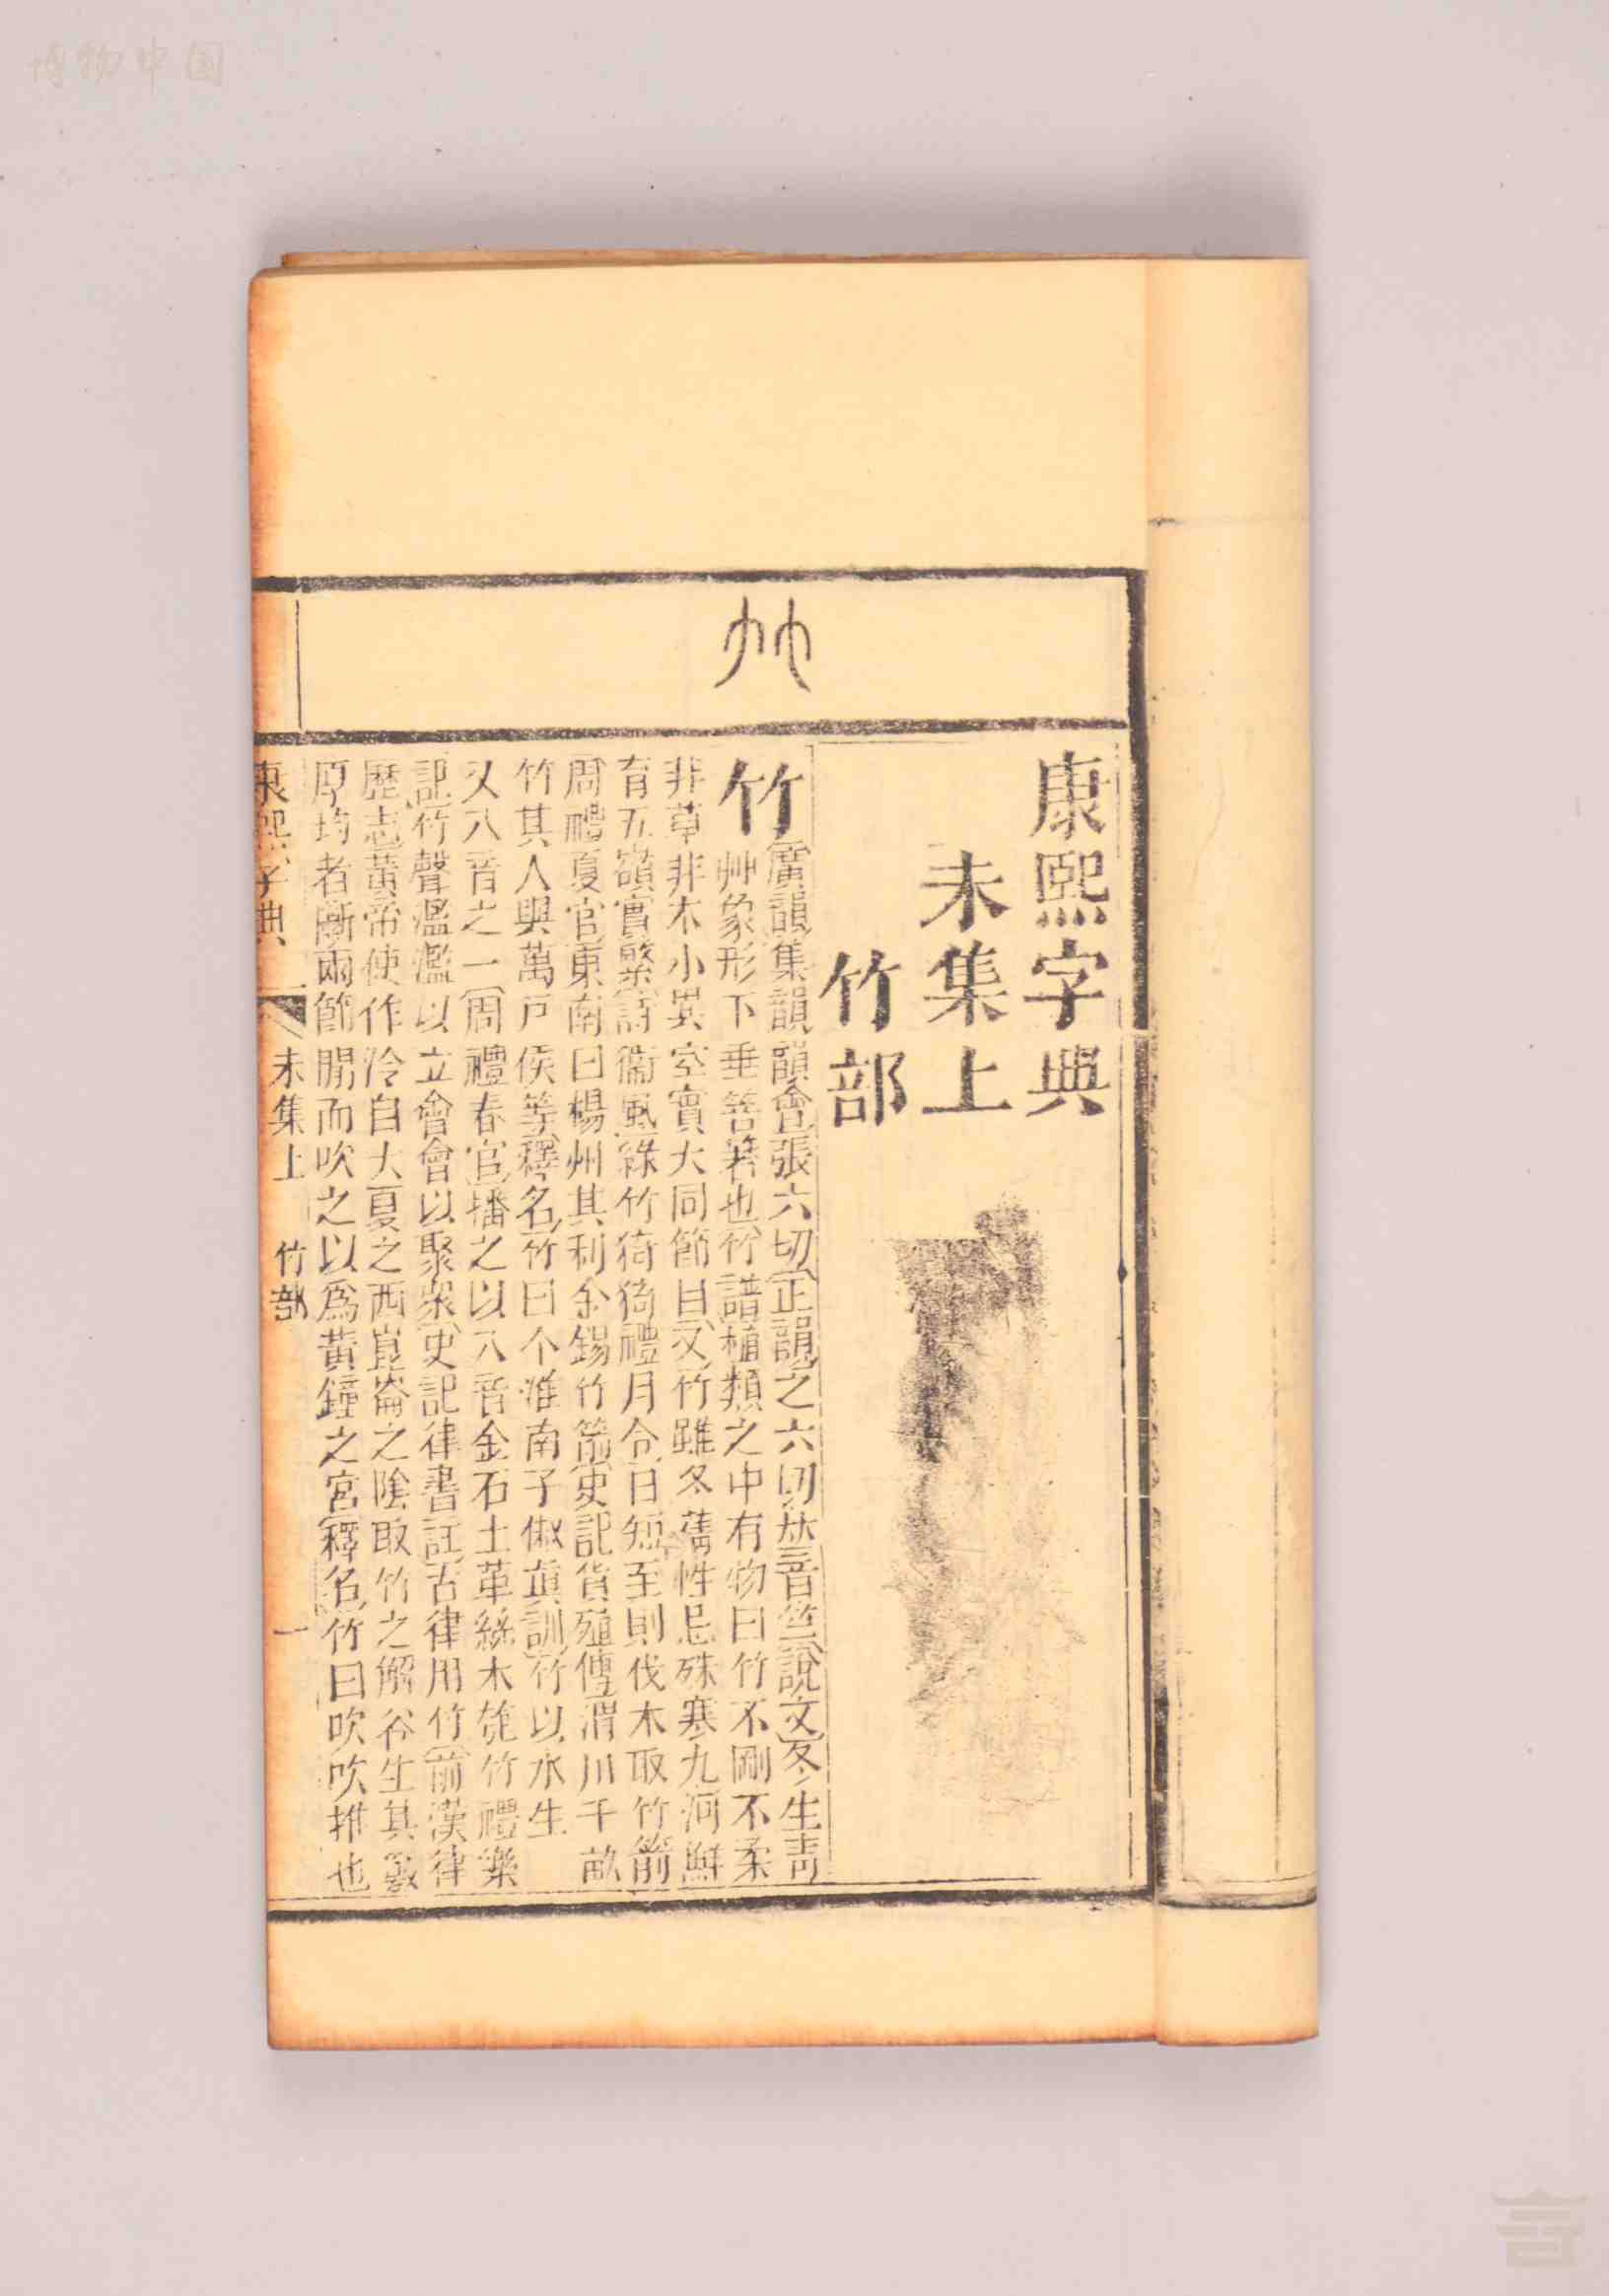 博物中国
康熙字典
未集上
竹部
竹
廣韻集韻韻會張六切正韻之六切𠀤音竺說文冬生靑
艸象形下垂箁箬也竹譜植類之中有物曰竹不剛不柔
非草非木小異空實大同節目又竹雖冬蒨性忌殊寒九河鮮
有五嶺實繁詩衞風綠竹猗猗禮月令日短至則伐木取竹箭
周禮夏官東南曰楊州其利金錫竹箭史記貨殖傳渭川千畝
竹其人與萬戸侯等釋名竹曰个淮南子俶眞訓竹以水生
又八音之一周禮春官播之以八音金石土革絲木匏竹禮樂
記竹聲濫濫以立會會以聚衆史記律書註古律用竹前漢律
歷志黃帝使作泠自大夏之西崑崙之隂取竹之解谷生其竅
厚均者斷兩節閒而吹之以爲黃鐘之宮釋名竹曰吹吹推也
康熙字典 未集上 竹部 一